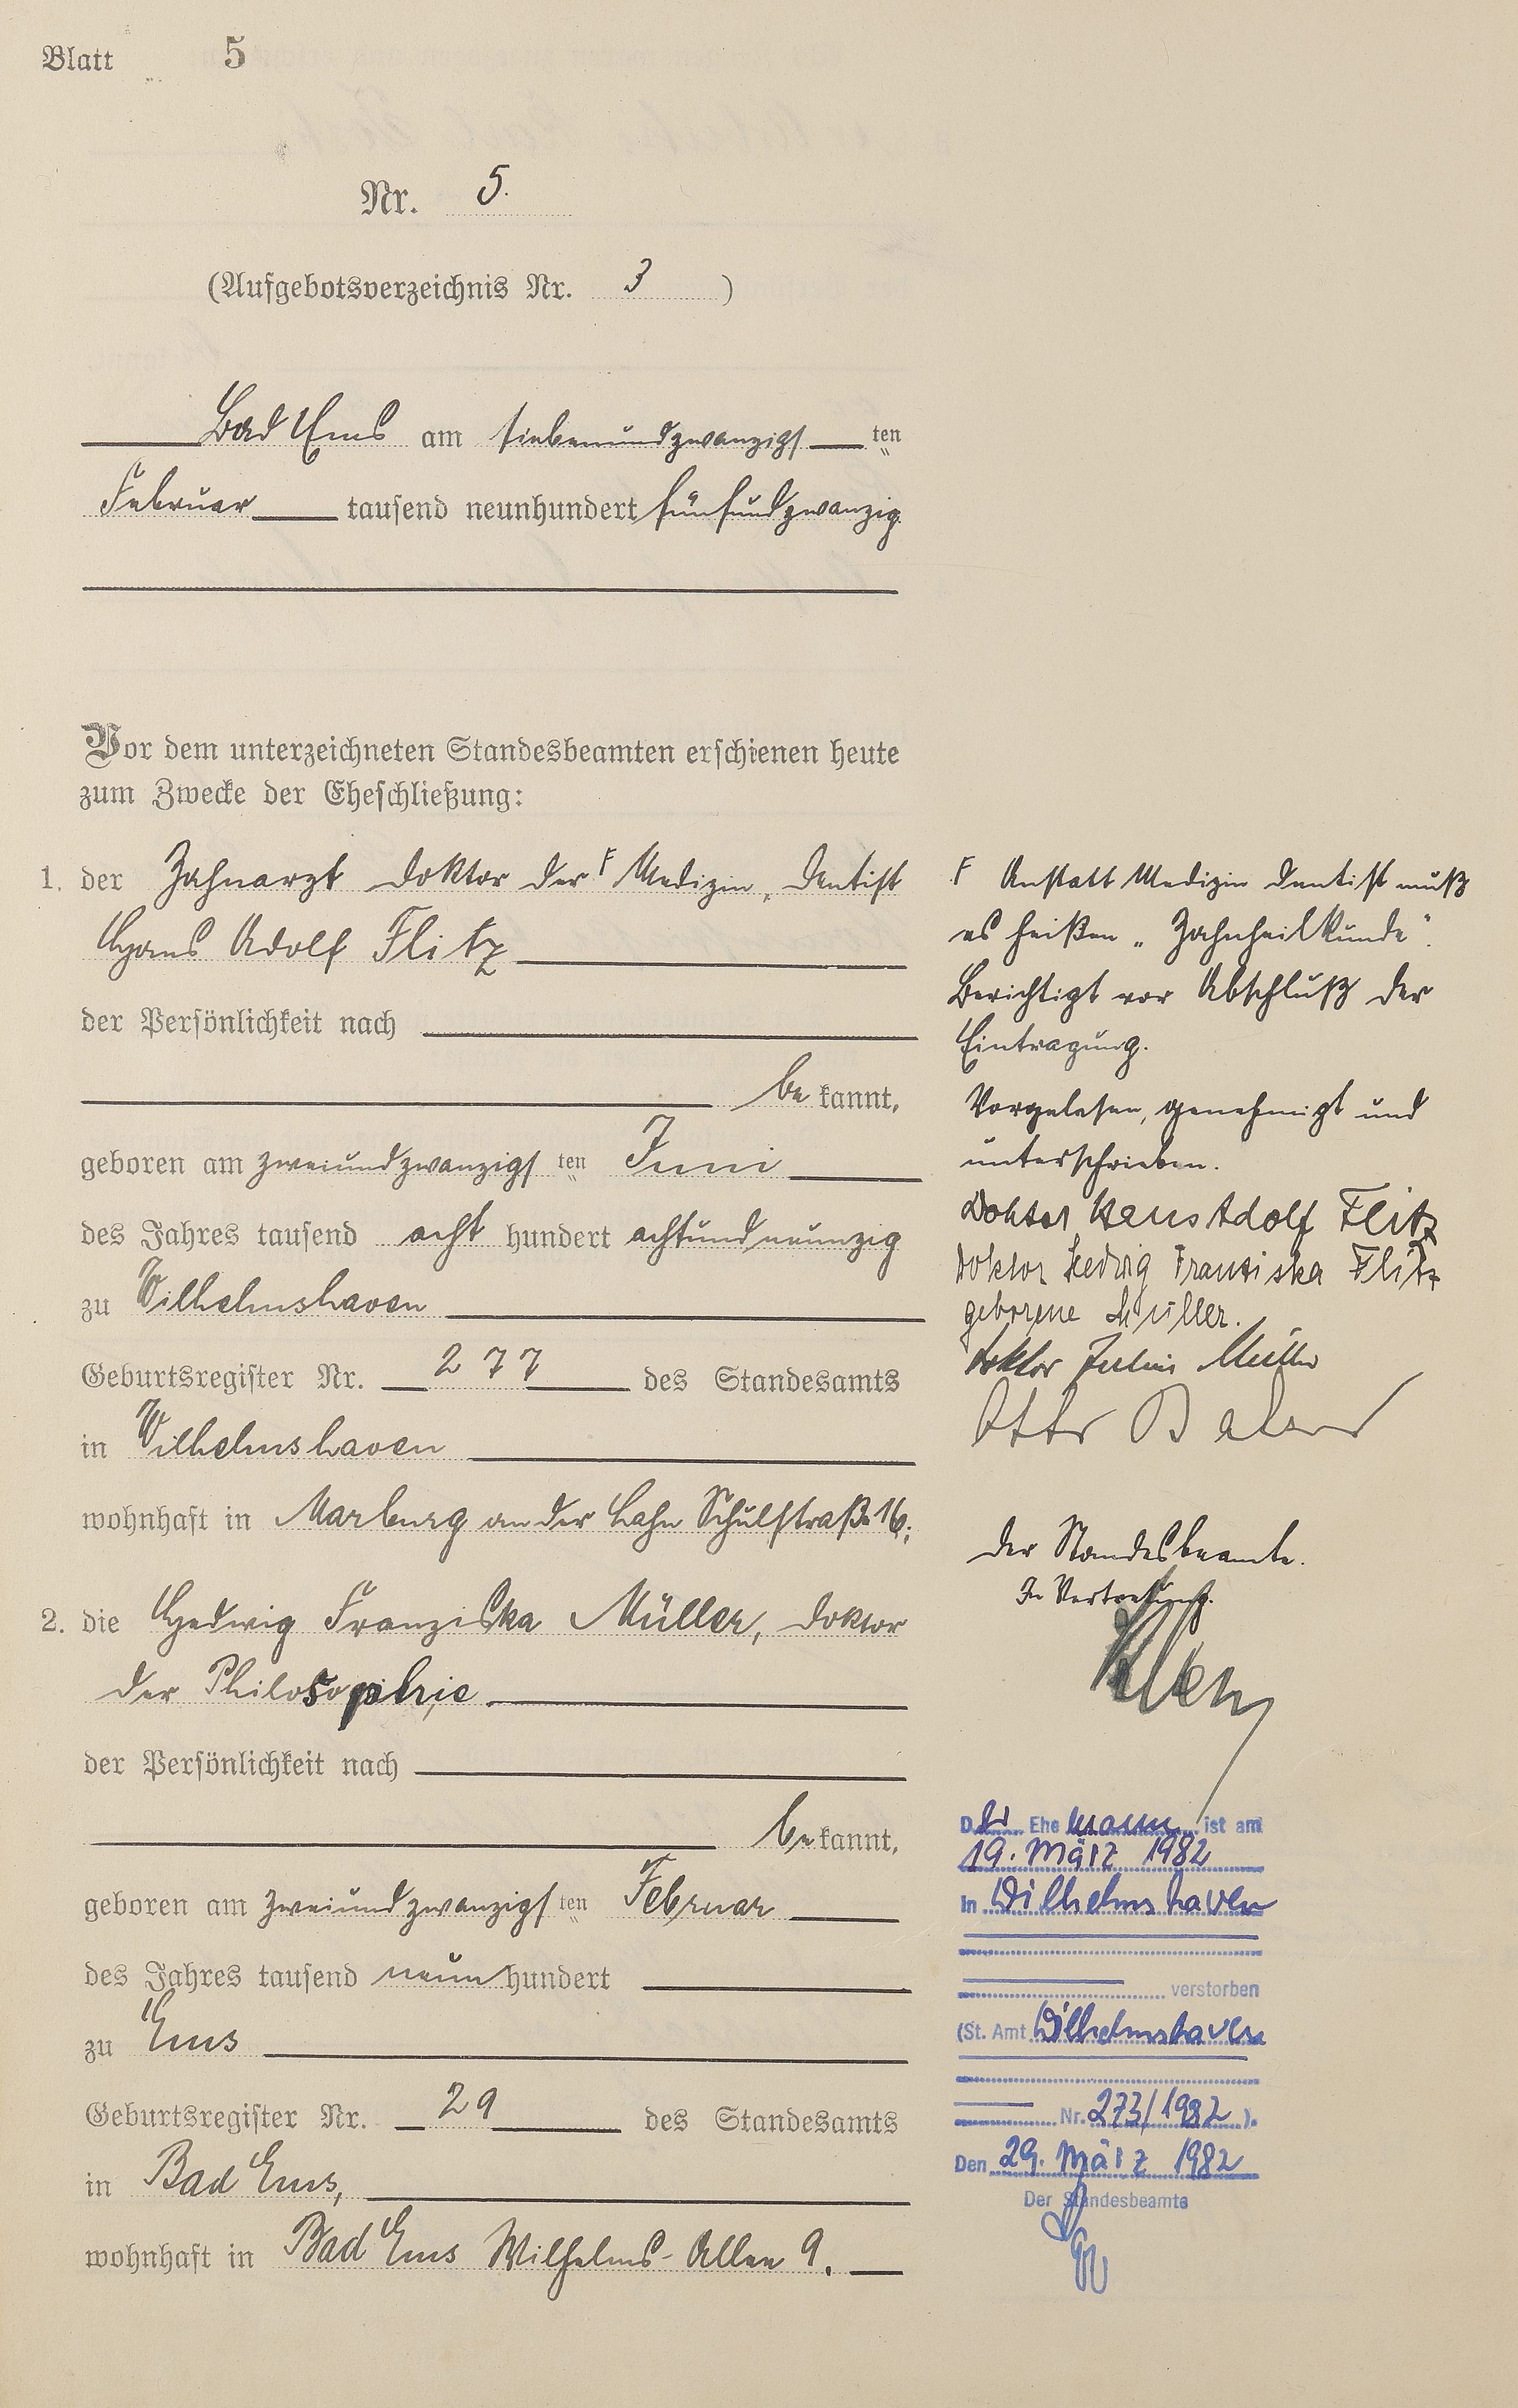 Blatt 5
Nr. 5.
(Aufgebotsverzeichnis Nr. 3 )
Bad Ems am siebenundzwanzigs ten
Februar tausend neunhundert fünfundzwanzig.
Vor dem unterzeichneten Standesbeamten erschienen heute
zum Zwecke der Eheschließung:
1. der Zahnarzt Doktor der F Medizin, Dentist
Hans Adolf Flitz
der Persönlichkeit nach
be kannt,
geboren am zweiundzwanzigs ten Juni
des Jahres tausend acht hundert achtundneunzig
zu Wilhelmshaven
Geburtsregister Nr. 277 des Standesamts
in Wilhelmshaven
wohnhaft in Marburg an der Lahn Schulstraße 16;
2. die Hedwig Franziska Müller, Doktor
der Philosophie
der Persönlichkeit nach
be kannt,
geboren am zweiundzwanzigs ten Februar
des Jahres tausend neun hundert
zu Ems
Geburtsregister Nr. 29 des Standesamts
in Bad Ems,
wohnhaft in Bad Ems Wilhelms-Allee 9.
F Anstatt Medizin Dentist muß
es heißen „Zahnheilkunde".
Berichtigt vor Abschluß der
Eintragung.
Vorgelesen, genehmigt und
unterschrieben.
Doktor Hans Adolf Flitz
Doktor Hedwig Franziska Flitz
geborene Müller.
Doktor Julius Müller
Otto
Der Standesbeamte.
In Vertretung.
Der Ehe mann ist am
19. März 1982
in Wilhelmshaven
verstorben
(St. Amt Wilhelmshaven
Nr. 273/1982 ).
Den 29. März 1982
Der Standesbeamte